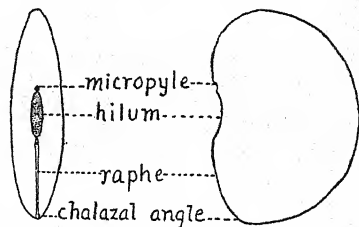 micropyle
hilum
raphe
chalazal angle